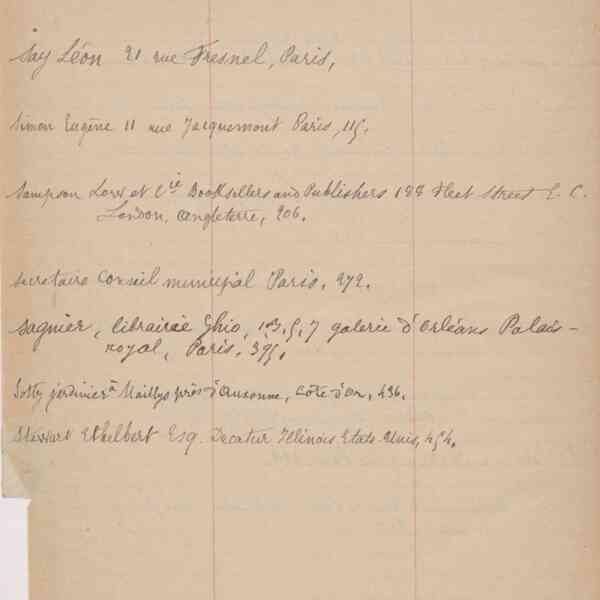 Say Léon 21 rue Fresnel, Paris,
Simon Eugène 11 rue Jacquemont Paris, 115.
Sampson Low et Cie Booksellers and Publishers 188 Fleet Street E. C.
London, Angleterre, 206.
secretaire Conseil municipal Paris, 272.
Sagnier, librairie Ghio, 1.3.5.7 galerie d'Orléans Palais-
royal, Paris, 395.
Sotty jardinier à Maillys près d'Auxonne, Côte d'Or, 436.
Stewart Ethelbert Esq. Decatur Illinois Etats-Unis, 454.